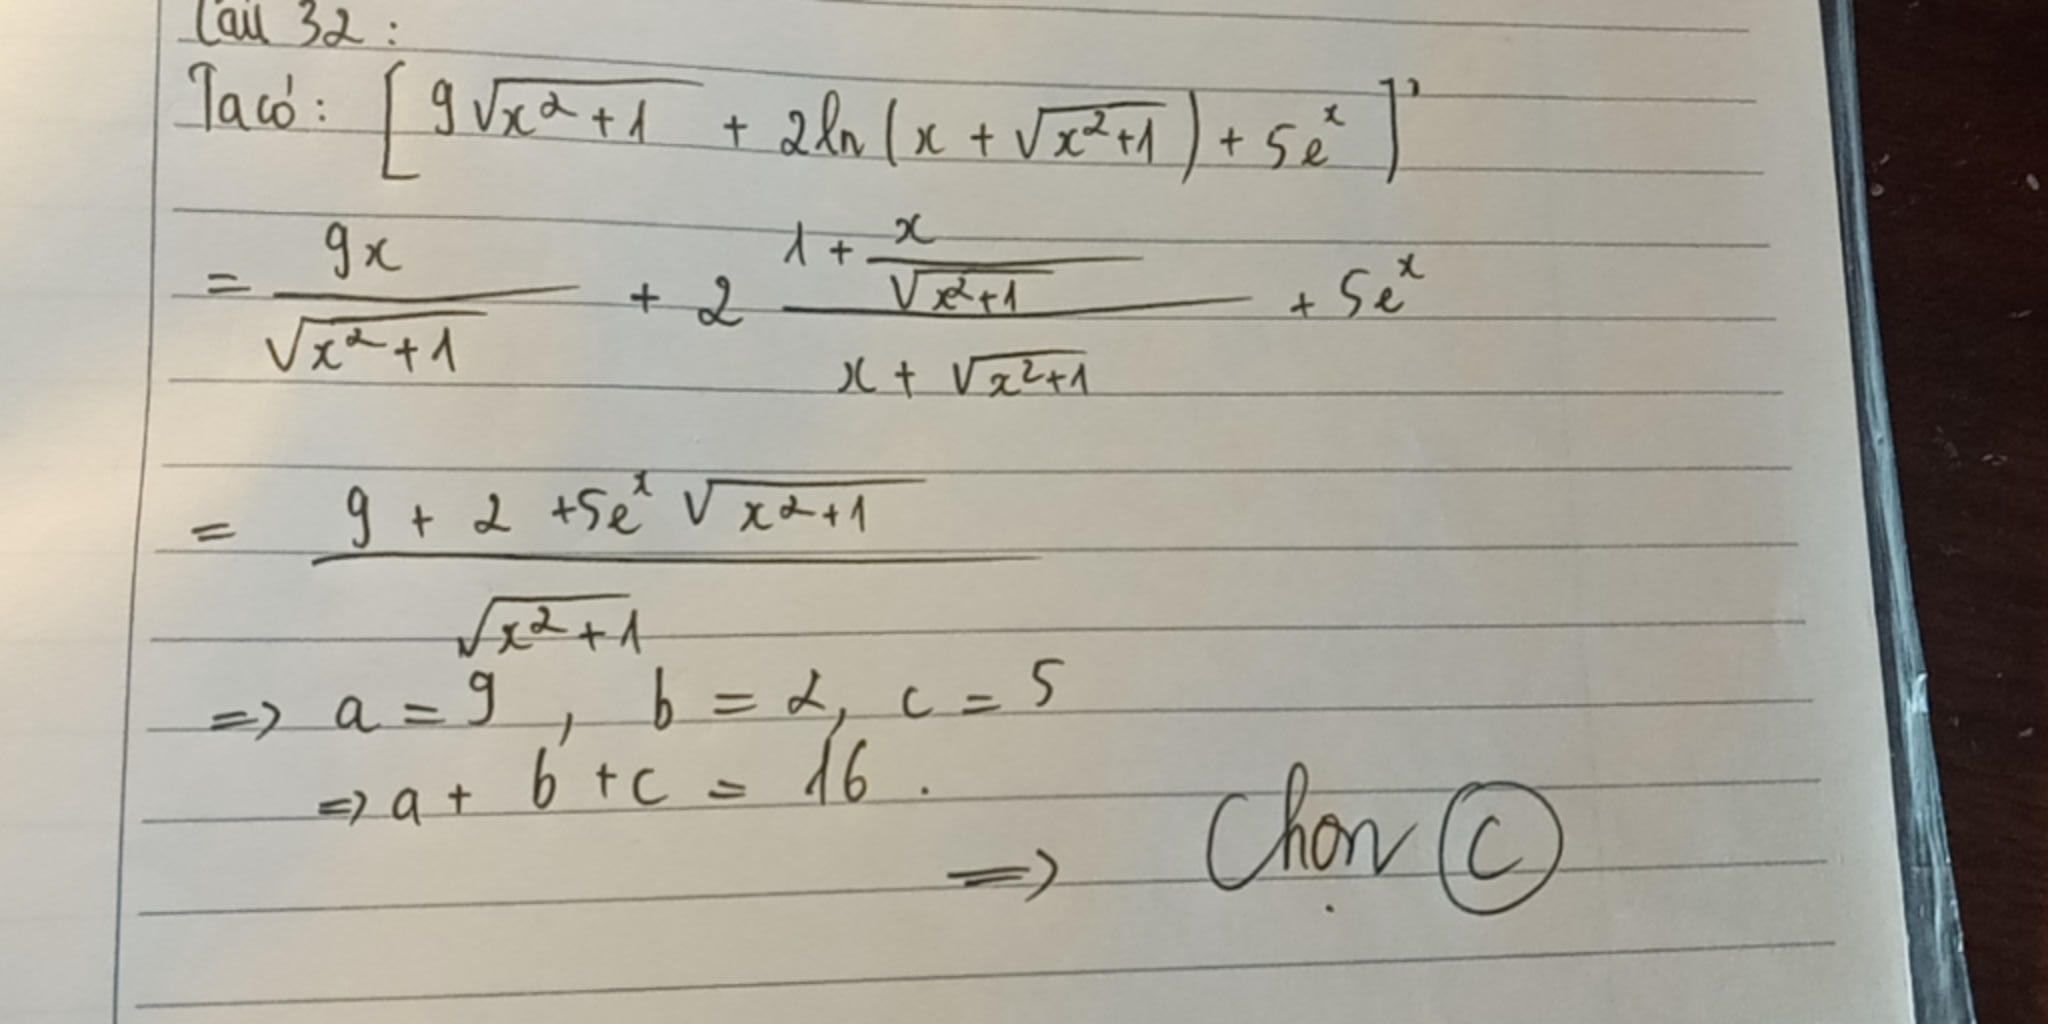 Câu 32:
Ta có: [9√(x²+1) + 2ln(x + √(x²+1)) + 5eˣ]'
= 9x/√(x²+1) + 2 (1 + x/√(x²+1))/(x + √(x²+1)) + 5eˣ
= (9 + 2 + 5eˣ √(x²+1))/√(x²+1)
=> a = 9, b = 2, c = 5
=> a + b + c = 16.
=> Chọn C